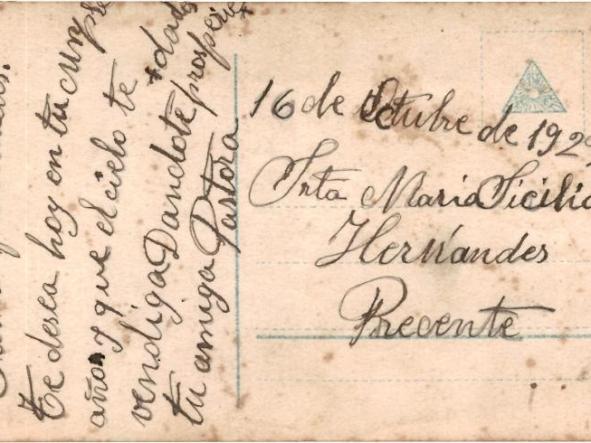 Te desea hoy en tu cumple
años y que el cielo te
vendiga Dandote prosperi
+ dad
tu amiga Pastora
16 de Octubre de 192
Srta Maria Sicilia
Hernándes
Precente